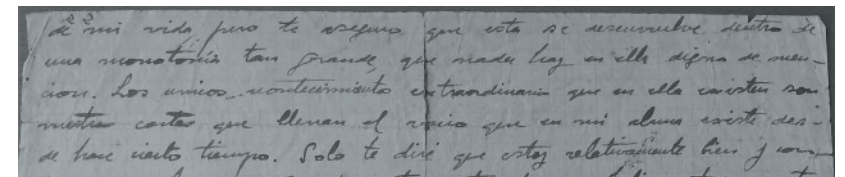 de mi vida, pero te aseguro que esta se desenvuelve dentro de
una monotonía tan grande, que nada hay en ella digna de men-
cion. Los unicos acontecimientos extraordinarios que en ella existen son
nuestras cartas que llenan el vacio que en mi alma existe des-
de hace cierto tiempo. Solo te diré que estoy relativamente bien y con-